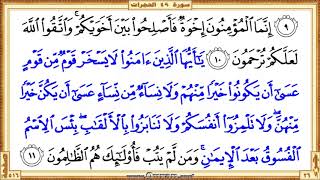 سورة ٤٩ الحجرات
٩ إِنَّمَا الْمُؤْمِنُونَ إِخْوَةٌ فَأَصْلِحُوا بَيْنَ أَخَوَيْكُمْ ۚ وَاتَّقُوا اللَّهَ
لَعَلَّكُمْ تُرْحَمُونَ ١٠ يَا أَيُّهَا الَّذِينَ ءَامَنُوا لَا يَسْخَرْ قَوْمٌ مِّن قَوْمٍ
عَسَىٰ أَن يَكُونُوا خَيْرًا مِّنْهُمْ وَلَا نِسَاءٌ مِّن نِّسَاءٍ عَسَىٰ أَن يَكُنَّ خَيْرًا
مِّنْهُنَّ ۖ وَلَا تَلْمِزُوا أَنفُسَكُمْ وَلَا تَنَابَزُوا بِالْأَلْقَابِ ۖ بِئْسَ الِاسْمُ
الْفُسُوقُ بَعْدَ الْإِيمَانِ ۚ وَمَن لَّمْ يَتُبْ فَأُولَٰئِكَ هُمُ الظَّالِمُونَ ١١
٥١٦
٢٦